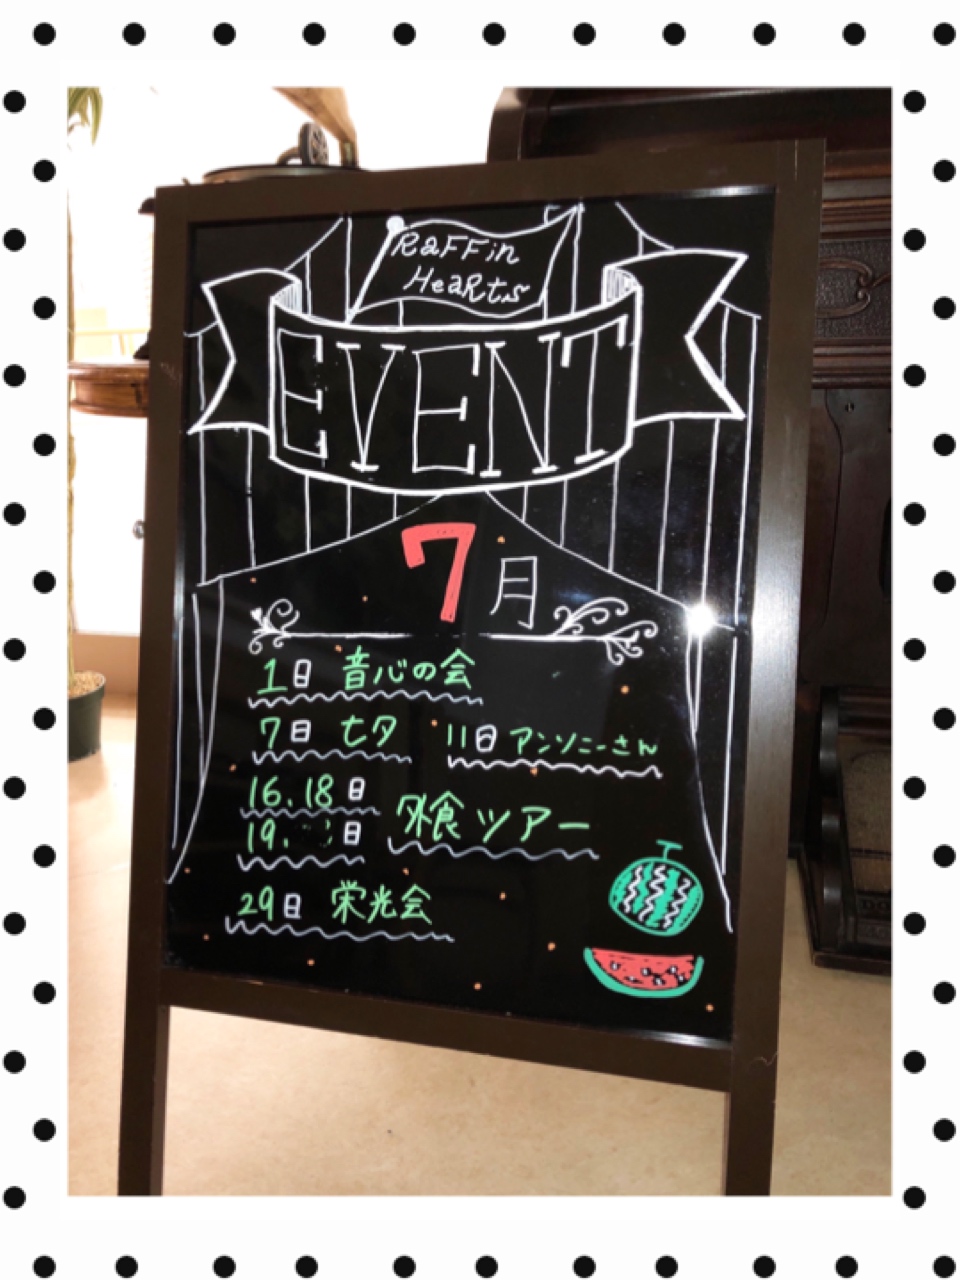 RaFFin
HeaRts
EVENT
7月
1日 音心の会
7日 七夕 11日 アンソニーさん
16.18日
19. 日 外食ツアー
29日 栄光会